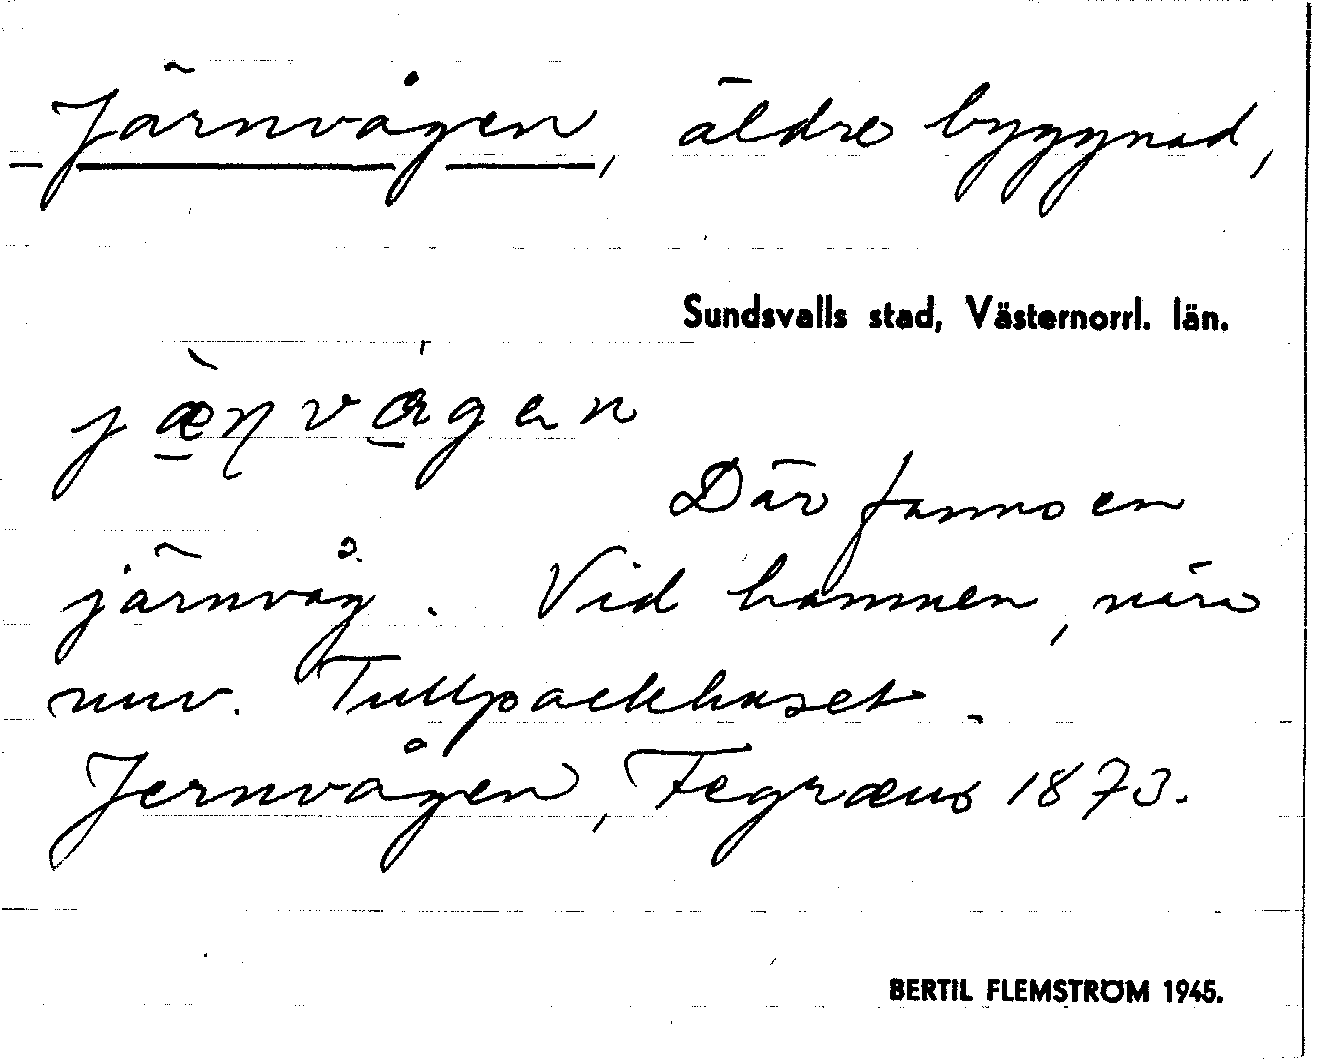 Järnvågen, äldre byggnad,
Sundsvalls stad, Västernorrl. län.
Där fanns en
järnvåg. Vid hamnen, nära
nuv. Tullpackhuset.
Jernvågen, Fegræus 1873.
BERTIL FLEMSTRÖM 1945.